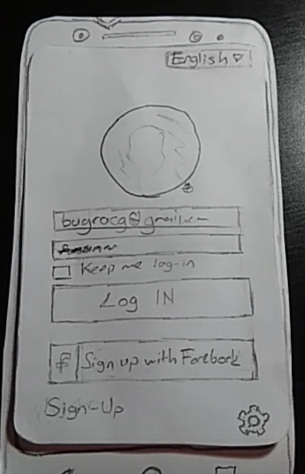 English
bugrocg@gmail.c
Keep me log-in
Log IN
f Sign up with Facebook
Sign-Up